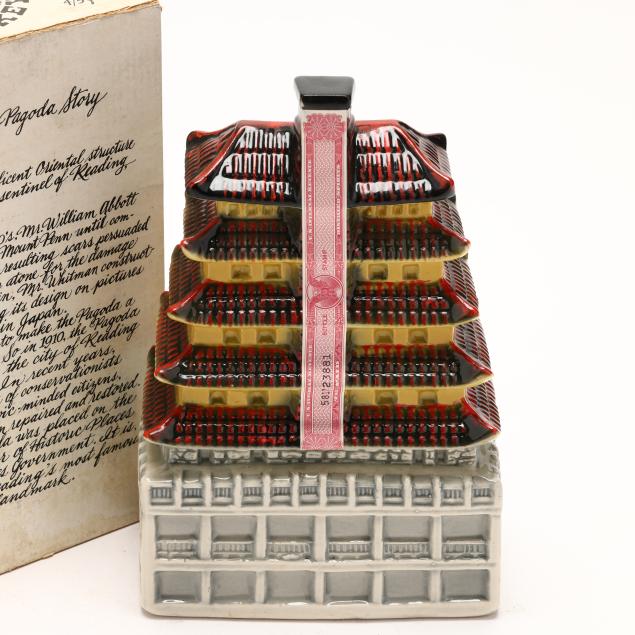 Pagoda Story
ficent Oriental structure
sentinel of Reading,
's. Mr. William Abbott
Mount Penn until com-
resulting scars persuaded
atone for the damage
in, Mr. Whitman construct-
g its design on pictures
in Japan.
to make the Pagoda a
So in 1910, the Pagoda
the city of Reading
In recent years,
of conservationists
ic-minded citizens,
n repaired and restored.
a was placed on the
r of Historic Places
s. Government. It is
ading's most famous
landmark.
DISTILLED SPIRITS
STAMP
BOTTLE
58123881